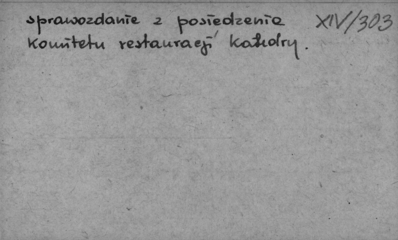 sprawozdanie z posiedzenia XIV/303
komitetu restauracji katedry.